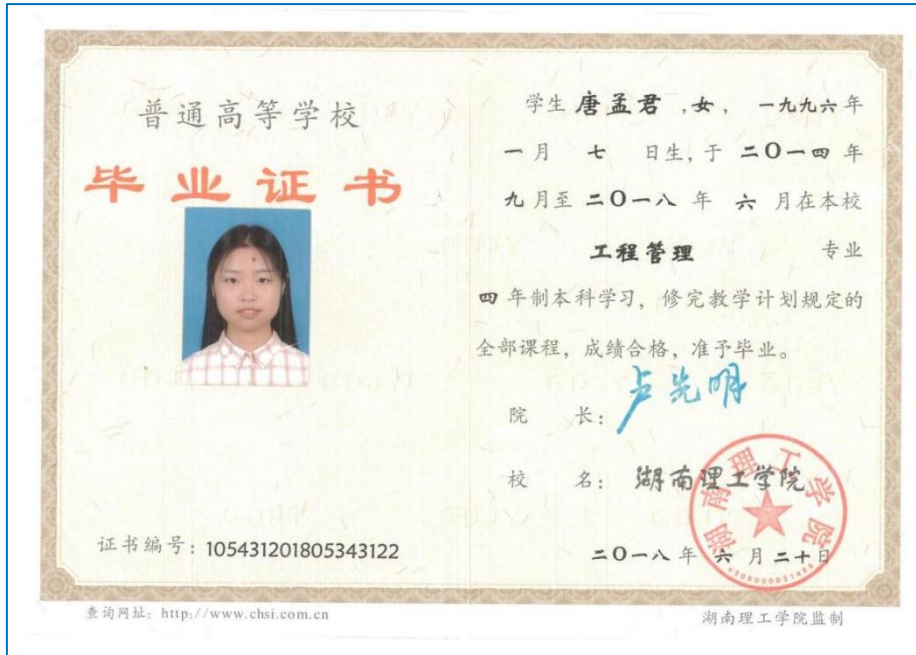 普通高等学校
毕业证书
证书编号：105431201805343122
学生 唐孟君 ，女， 一九九六 年
一 月 七 日生，于 二〇一四 年
九 月至 二〇一八 年 六 月在本校
工程管理 专业
四 年制本科学习，修完教学计划规定的
全部课程，成绩合格，准予毕业。
院 长：卢先明
校 名：湖南理工学院
湖南理工学院
二〇一八 年 六 月 二十 日
查询网址：http://www.chsi.com.cn
湖南理工学院监制